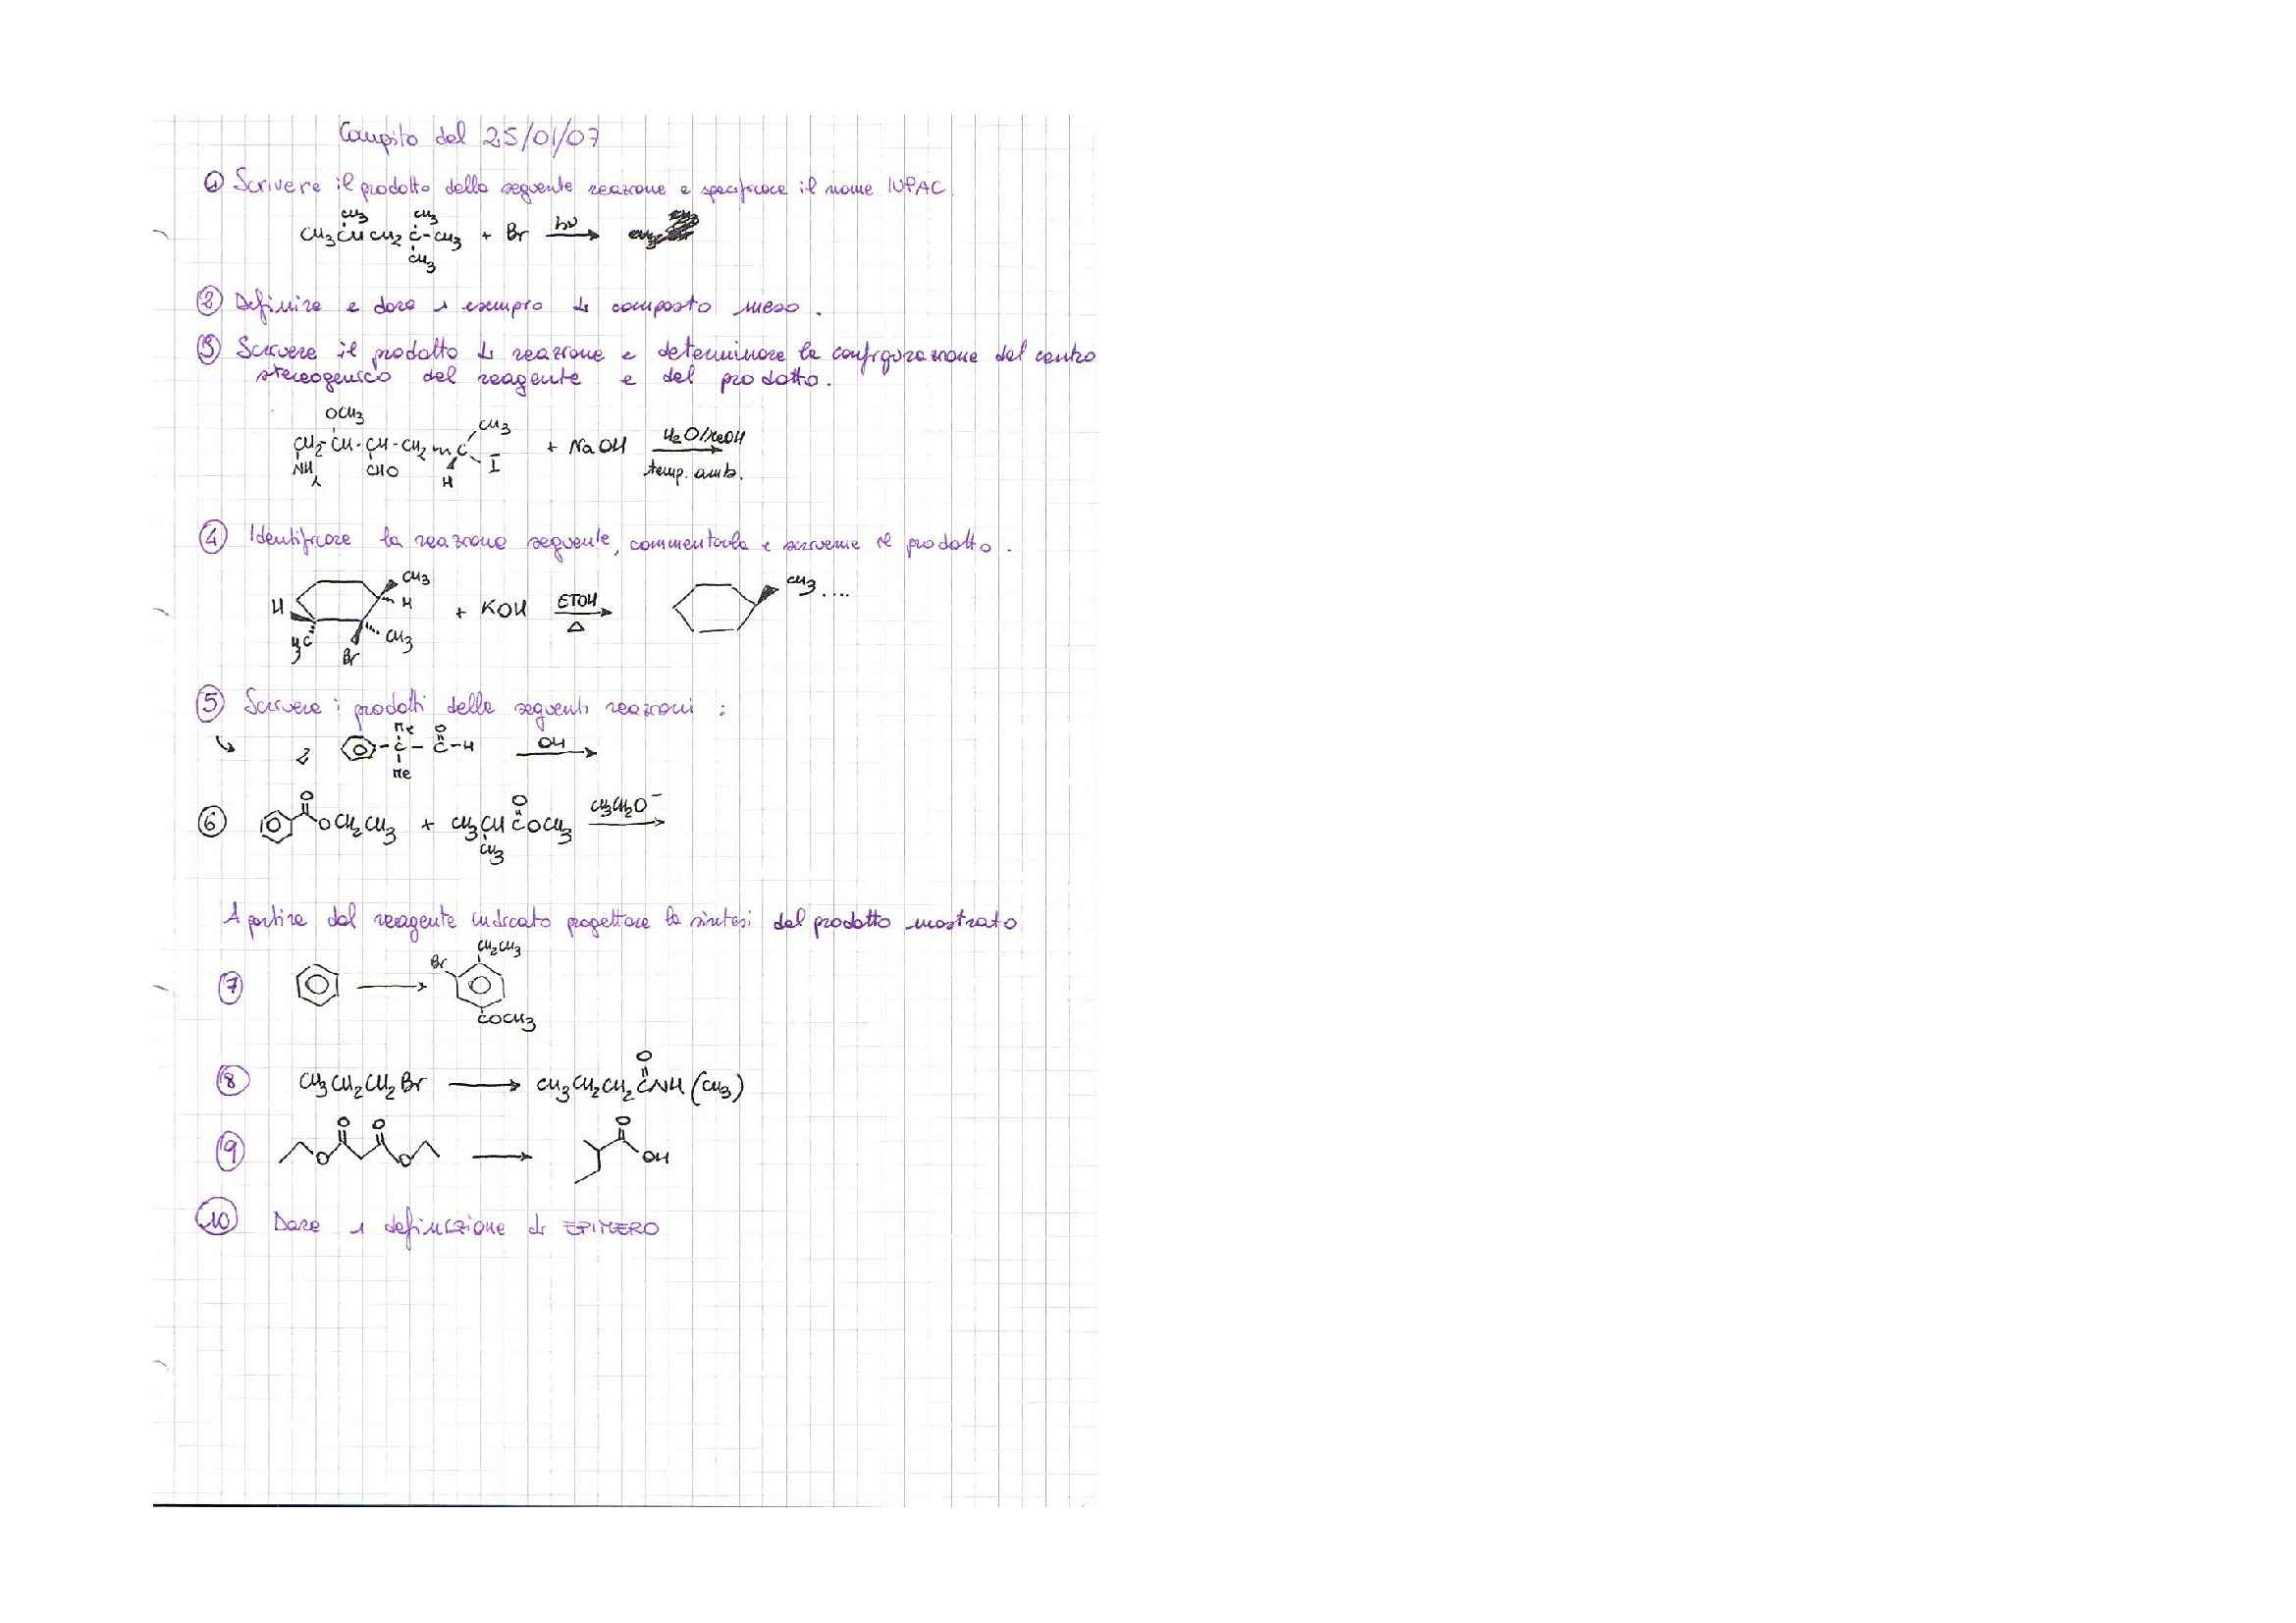 Compito del 25/01/07
① Scrivere il prodotto della seguente reazione e specificare il nome IUPAC.
CH3 CH3
CH3CHCH2C-CH3 + Br hν
CH3
② Definire e dare 1 esempio di composto meso.
③ Scrivere il prodotto di reazione e determinare la configurazione del centro
stereogenico del reagente e del prodotto.
OCH3
CH3
CH2-CH-CH-CH2 C + NaOH H2O/MeOH
NH2 CHO H I temp. amb.
④ Identificare la reazione seguente, commentarla e scriverne il prodotto.
CH3 CH3....
H H + KOH ETOH
H3C Br CH3 Δ
⑤ Scrivere i prodotti delle seguenti reazioni:
Me O
2 -C-C-H OH
Me
⑥ O O
OCH2CH3 + CH3CHCOCH3 CH3CH2O-
CH3
A partire dal reagente indicato progettare la sintesi del prodotto mostrato
CH2CH3
⑦ Br
COCH3
O
⑧ CH3CH2CH2Br CH3CH2CH2CNH(CH3)
O O O
⑨ O O OH
⑩ Dare 1 definizione di EPIMERO